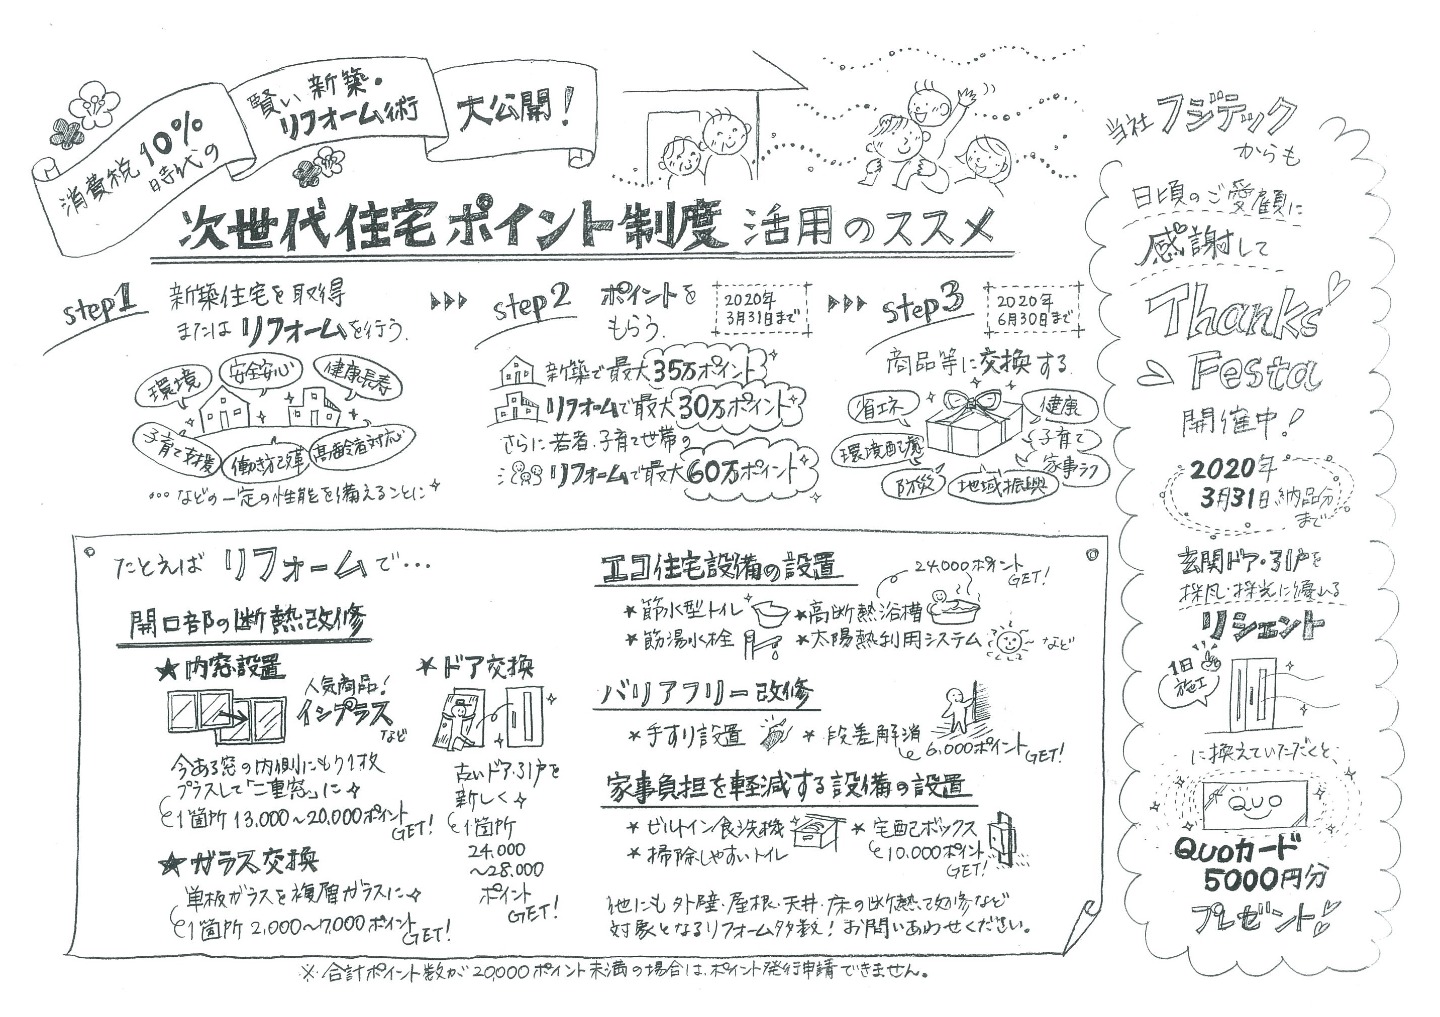 消費税10%
時代の
賢い新築・
リフォーム術
大公開!
次世代住宅ポイント制度 活用のススメ
step1
新築住宅を取得
またはリフォームを行う.
環境
安全安心
健康長寿
子育て支援
働き方改革
高齢者対応
…などの一定の性能を備えることに
step2
ポイントを
もらう.
2020年
3月31日まで
新築で最大35万ポイント
リフォームで最大30万ポイント
さらに若者・子育て世帯の
リフォームで最大60万ポイント
step3
2020年
6月30日まで
商品等に交換する
省エネ
環境配慮
防災
地域振興
健康
子育て
家事ラク
たとえばリフォームで…
開口部の断熱改修
★内窓設置
人気商品!
インプラス
など
今ある窓の内側にもう1枚
プラスして「二重窓」に
1箇所 13,000〜20,000ポイント
GET!
★ガラス交換
単板ガラスを複層ガラスに
1箇所 2,000〜7,000ポイント
GET!
★ドア交換
古いドア・引戸を
新しく
1箇所
24,000
〜28,000
ポイント
GET!
エコ住宅設備の設置
24,000ポイント
GET!
★節水型トイレ
★高断熱浴槽
★節湯水栓
★太陽熱利用システム
など
バリアフリー改修
★手すり設置
★段差解消
6,000ポイント
GET!
家事負担を軽減する設備の設置
★ビルトイン食洗機
★宅配ボックス
★掃除しやすいトイレ
10,000ポイント
GET!
他にも外壁・屋根・天井・床の断熱改修など
対象となるリフォーム多数! お問いあわせください。
※合計ポイント数が20,000ポイント未満の場合は、ポイント発行申請できません。
当社フジテック
からも
日頃のご愛顧に
感謝して
Thanks
Festa
開催中!
2020年
3月31日納品分
まで
玄関ドア・引戸を
採風・採光に優れる
リシェント
1日
施工
に換えていただくと、
QUO
QUOカード
5000円分
プレゼント